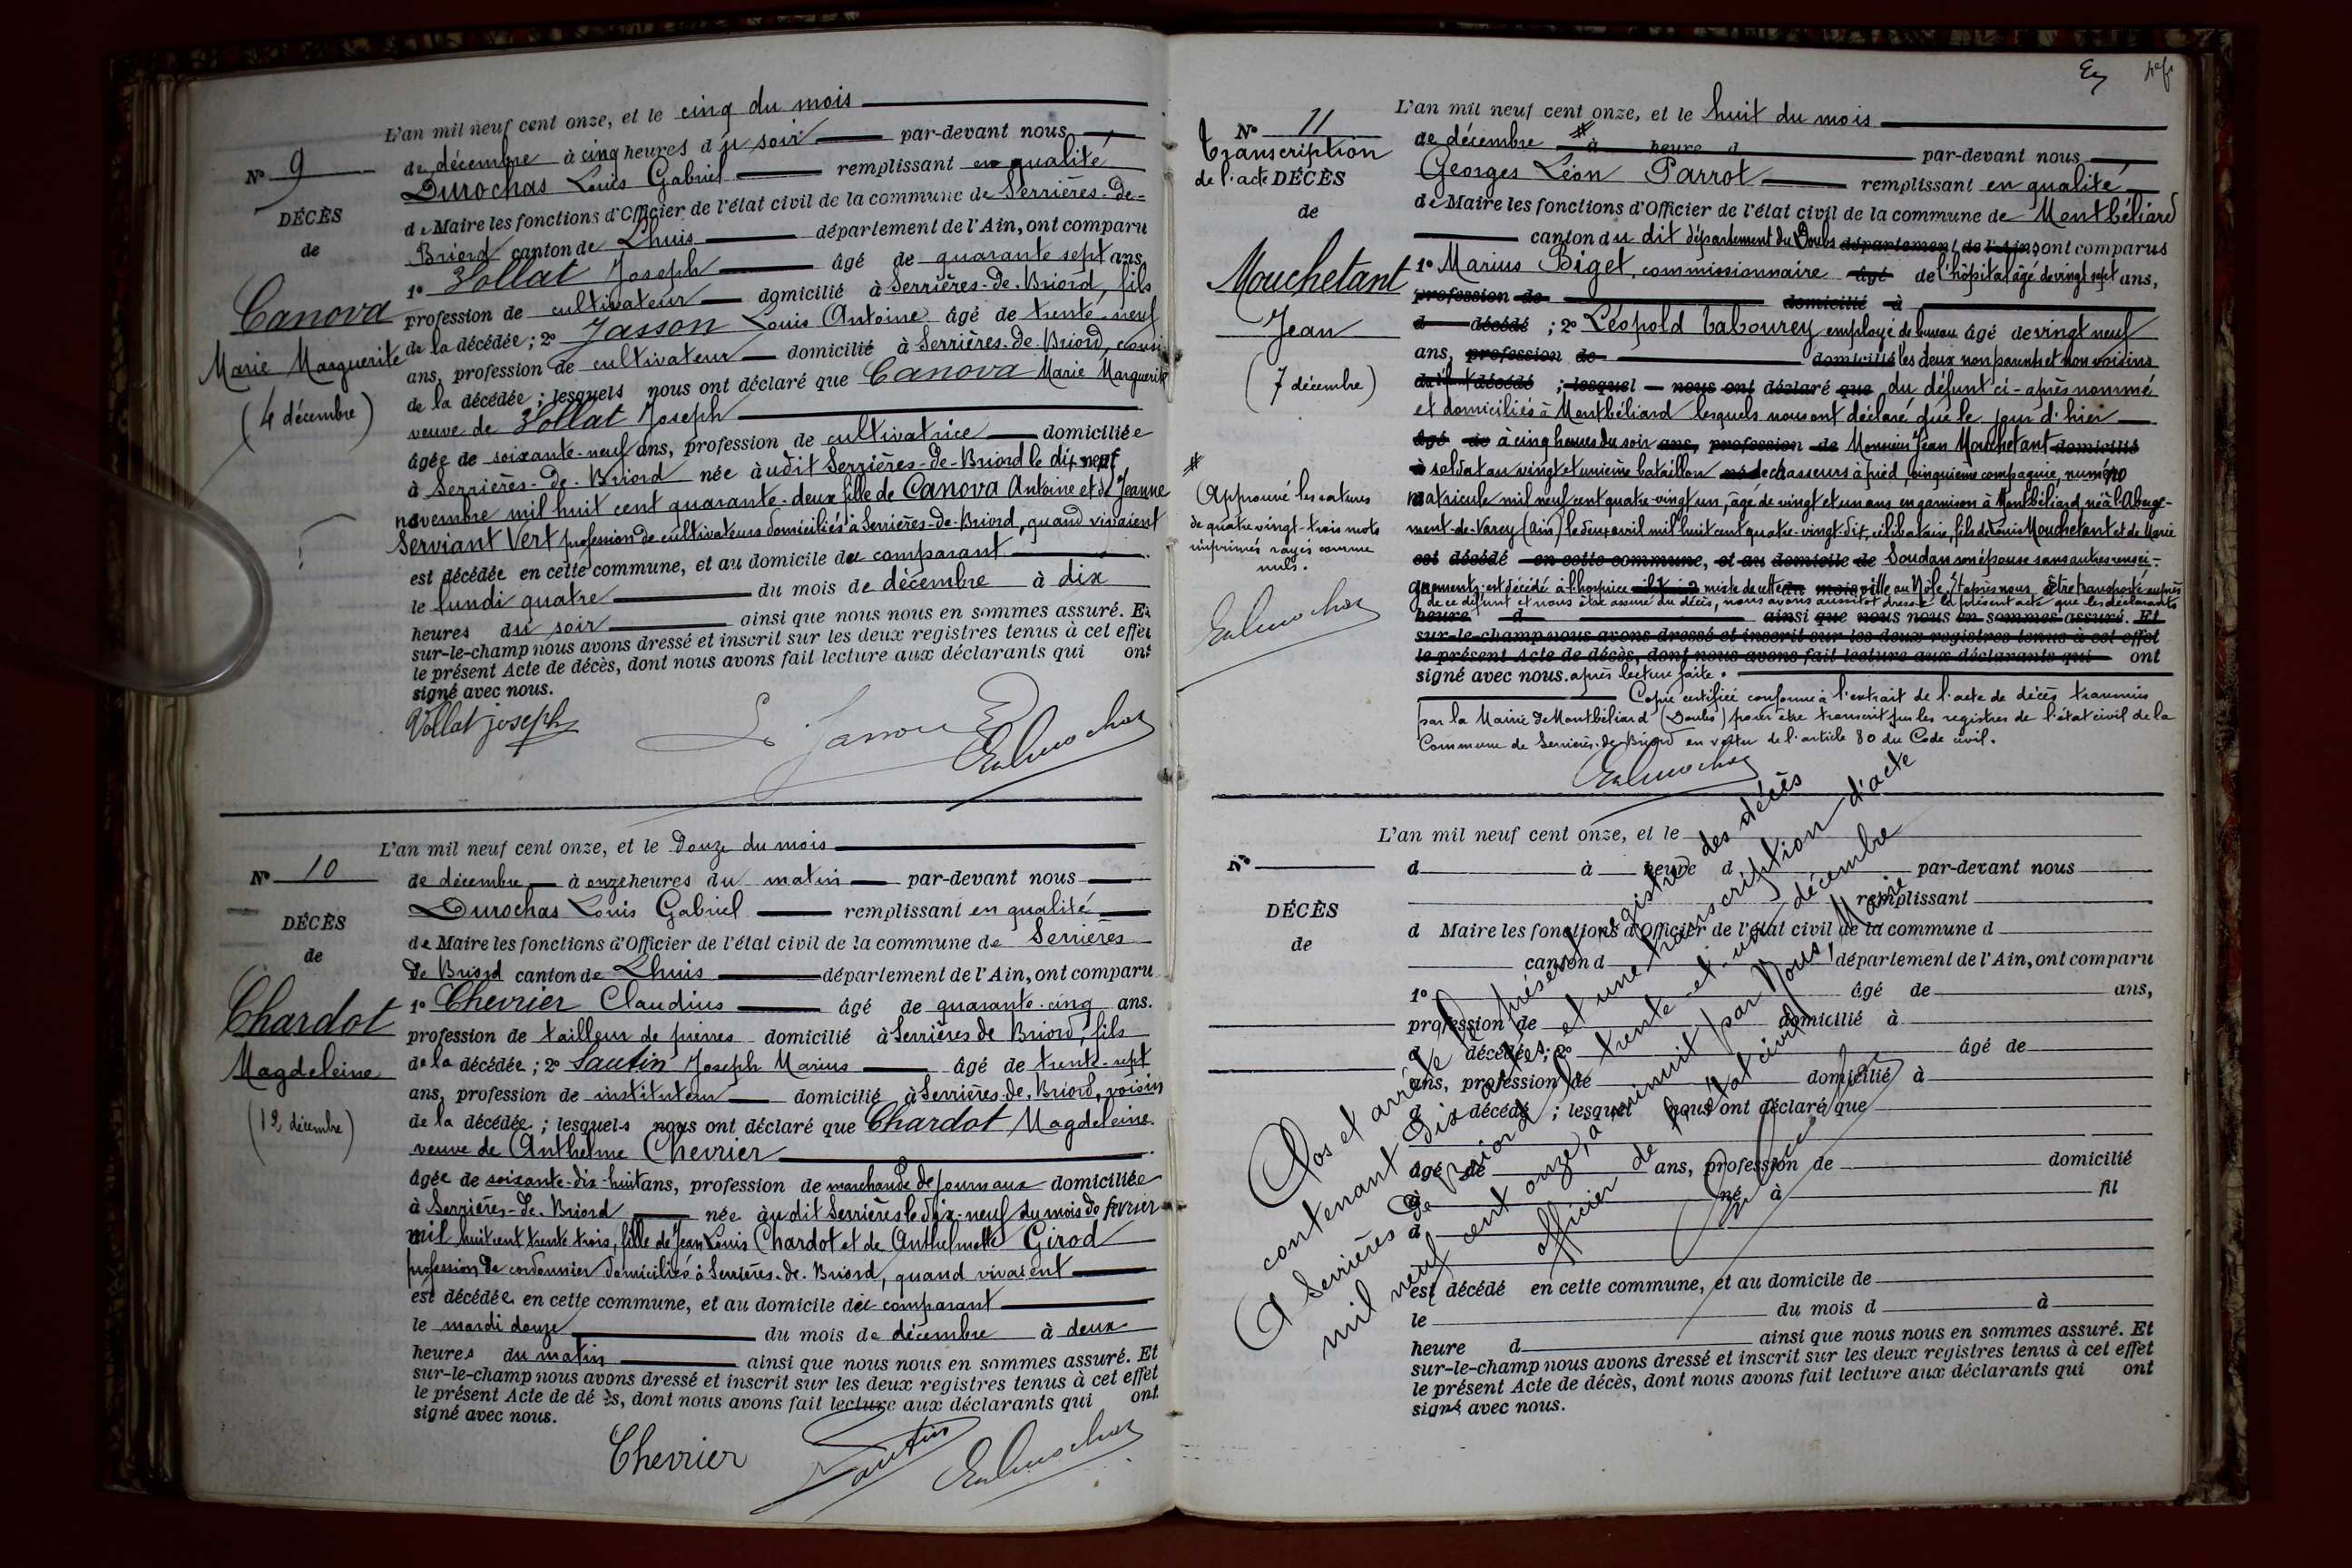 N° 9
DÉCÈS
de
Canova
Marie Marguerite
(4 décembre)
L'an mil neuf cent onze, et le cinq du mois
de décembre à cinq heures du soir par-devant nous
Durochas Louis Gabriel remplissant en qualité
de Maire les fonctions d'Officier de l'état civil de la commune de Serrières-de-
Briord canton de Lhuis département de l'Ain, ont comparu
1° Vollat Joseph âgé de quarante sept ans,
profession de cultivateur domicilié à Serrières-de-Briord, fils
de la décédée; 2° Jasson Louis Antoine âgé de trente-neuf
ans, profession de cultivateur domicilié à Serrières-de-Briord,
de la décédée; lesquels nous ont déclaré que Canova Marie Marguerite
veuve de Vollat Joseph
âgée de soixante-neuf ans, profession de cultivatrice domiciliée
à Serrières-de-Briord née audit Serrières-de-Briord le dix neuf
novembre mil huit cent quarante-deux fille de Canova Antoine et de Jeanne
Serviant Vert profession de cultivateurs domiciliés à Serrières-de-Briord, quand vivaient
est décédée en cette commune, et au domicile du comparant
le lundi quatre du mois de décembre à dix
heures du soir ainsi que nous nous en sommes assuré. Et
sur-le-champ nous avons dressé et inscrit sur les deux registres tenus à cet effet
le présent Acte de décès, dont nous avons fait lecture aux déclarants qui ont
signé avec nous.
Vollat joseph
N° 10
DÉCÈS
de
Chardot
Magdeleine
(12 décembre)
L'an mil neuf cent onze, et le Douze du mois
de décembre à onze heures du matin par-devant nous
Durochas Louis Gabriel remplissant en qualité
de Maire les fonctions d'Officier de l'état civil de la commune de Serrières
de Briord canton de Lhuis département de l'Ain, ont comparu
1° Chevrier Claudius âgé de quarante-cinq ans.
profession de tailleur de pierres domicilié à Serrières de Briord, fils
de la décédée; 2° Sautin Joseph Marius âgé de trente-sept
ans, profession de instituteur domicilié à Serrières-de-Briord, voisin
de la décédée; lesquels nous ont déclaré que Chardot Magdeleine
veuve de Anthelme Chevrier
âgée de soixante-dix-huit ans, profession de marchande de journaux domiciliée
à Serrières-de-Briord née audit Serrières le dix-neuf du mois de février
mil huit cent trente trois, fille de Jean Louis Chardot et de Anthelmette Girod
profession de cordonnier domiciliés à Serrières-de-Briord, quand vivaient
est décédée en cette commune, et au domicile du comparant
le mardi douze du mois de décembre à deux
heures du matin ainsi que nous nous en sommes assuré. Et
sur-le-champ nous avons dressé et inscrit sur les deux registres tenus à cet effet
le présent Acte de décès, dont nous avons fait lecture aux déclarants qui ont
signé avec nous.
Chevrier Sautin
N° 11
Transcription
de l'acte DÉCÈS
de
Mouchetant
Jean
(7 décembre)
# Approuvé les ratures
de quatre vingt-trois mots
imprimés rayés comme
nuls.
L'an mil neuf cent onze, et le huit du mois
de décembre # à heure d par-devant nous
Georges Léon Parrot remplissant en qualité
de Maire les fonctions d'Officier de l'état civil de la commune de Montbéliard
canton du dit département du Doubs département de l'Ain, ont comparus
1° Marius Biget, commissionnaire âgé de l'hôpital âgé de vingt sept ans,
profession de domicilié à
d décédé; 2° Léopold Tabourey employé de bureau âgé de vingt neuf
ans, profession de domicilié les deux non parents et non voisins
du décédé; lesquel nous ont déclaré que du défunt ci-après nommé
et domiciliés à Montbéliard lesquels nous ont déclaré que le jour d'hier
âgé de à cinq heures du soir ans, profession de Monsieur Jean Mouchetant domicilié
à soldat au vingt et unième bataillon né de chasseurs à pied cinquième compagnie, numéro
matricule mil neuf cent quatre-vingt un, âgé de vingt et un ans en garnison à Montbéliard, né à l'Aberge-
ment-de-Varey (Ain) le deux avril mil huit cent quatre-vingt-dix, célibataire, fils de Louis Mouchetant et de Marie
est décédé en cette commune, et au domicile de Soudan son épouse sans autres rensei-
gnements; est décédé à l'hospice mixte de cette du mois ville au Môle, Et après nous être transporté auprès
de ce défunt et nous être assuré du décès, nous avons aussitôt dressé le présent acte que les déclarants
heure d ainsi que nous nous en sommes assuré. Et
sur-le-champ nous avons dressé et inscrit sur les deux registres tenus à cet effet
le présent Acte de décès, dont nous avons fait lecture aux déclarants qui ont
signé avec nous. après lecture faite.
Copie certifiée conforme à l'extrait de l'acte de décès transmis
par la Mairie de Montbéliard (Doubs) pour être transcrit sur les registres de l'état civil de la
Commune de Serrières-de-Briord en vertu de l'article 80 du Code civil.
N°
DÉCÈS
de
L'an mil neuf cent onze, et le
d à heure d par-devant nous
remplissant
d Maire les fonctions d'Officier de l'état civil de la commune d
canton d département de l'Ain, ont comparu
1° âgé de ans,
profession de domicilié à
d décédée; 2° âgé de
ans, profession de domicilié à
d décédé; lesquel nous ont déclaré que
âgé de ans, profession de domicilié
à né à fil
d
est décédé en cette commune, et au domicile de
le du mois d à
heure d ainsi que nous nous en sommes assuré. Et
sur-le-champ nous avons dressé et inscrit sur les deux registres tenus à cet effet
le présent Acte de décès, dont nous avons fait lecture aux déclarants qui ont
signé avec nous.
Clos et arrêté le présent registre des décès
contenant Dix actes et une transcription d'acte
A Serrières de Briord le trente-et-un décembre
mil neuf cent onze, à minuit par Nous, Maire
officier de l'état civil